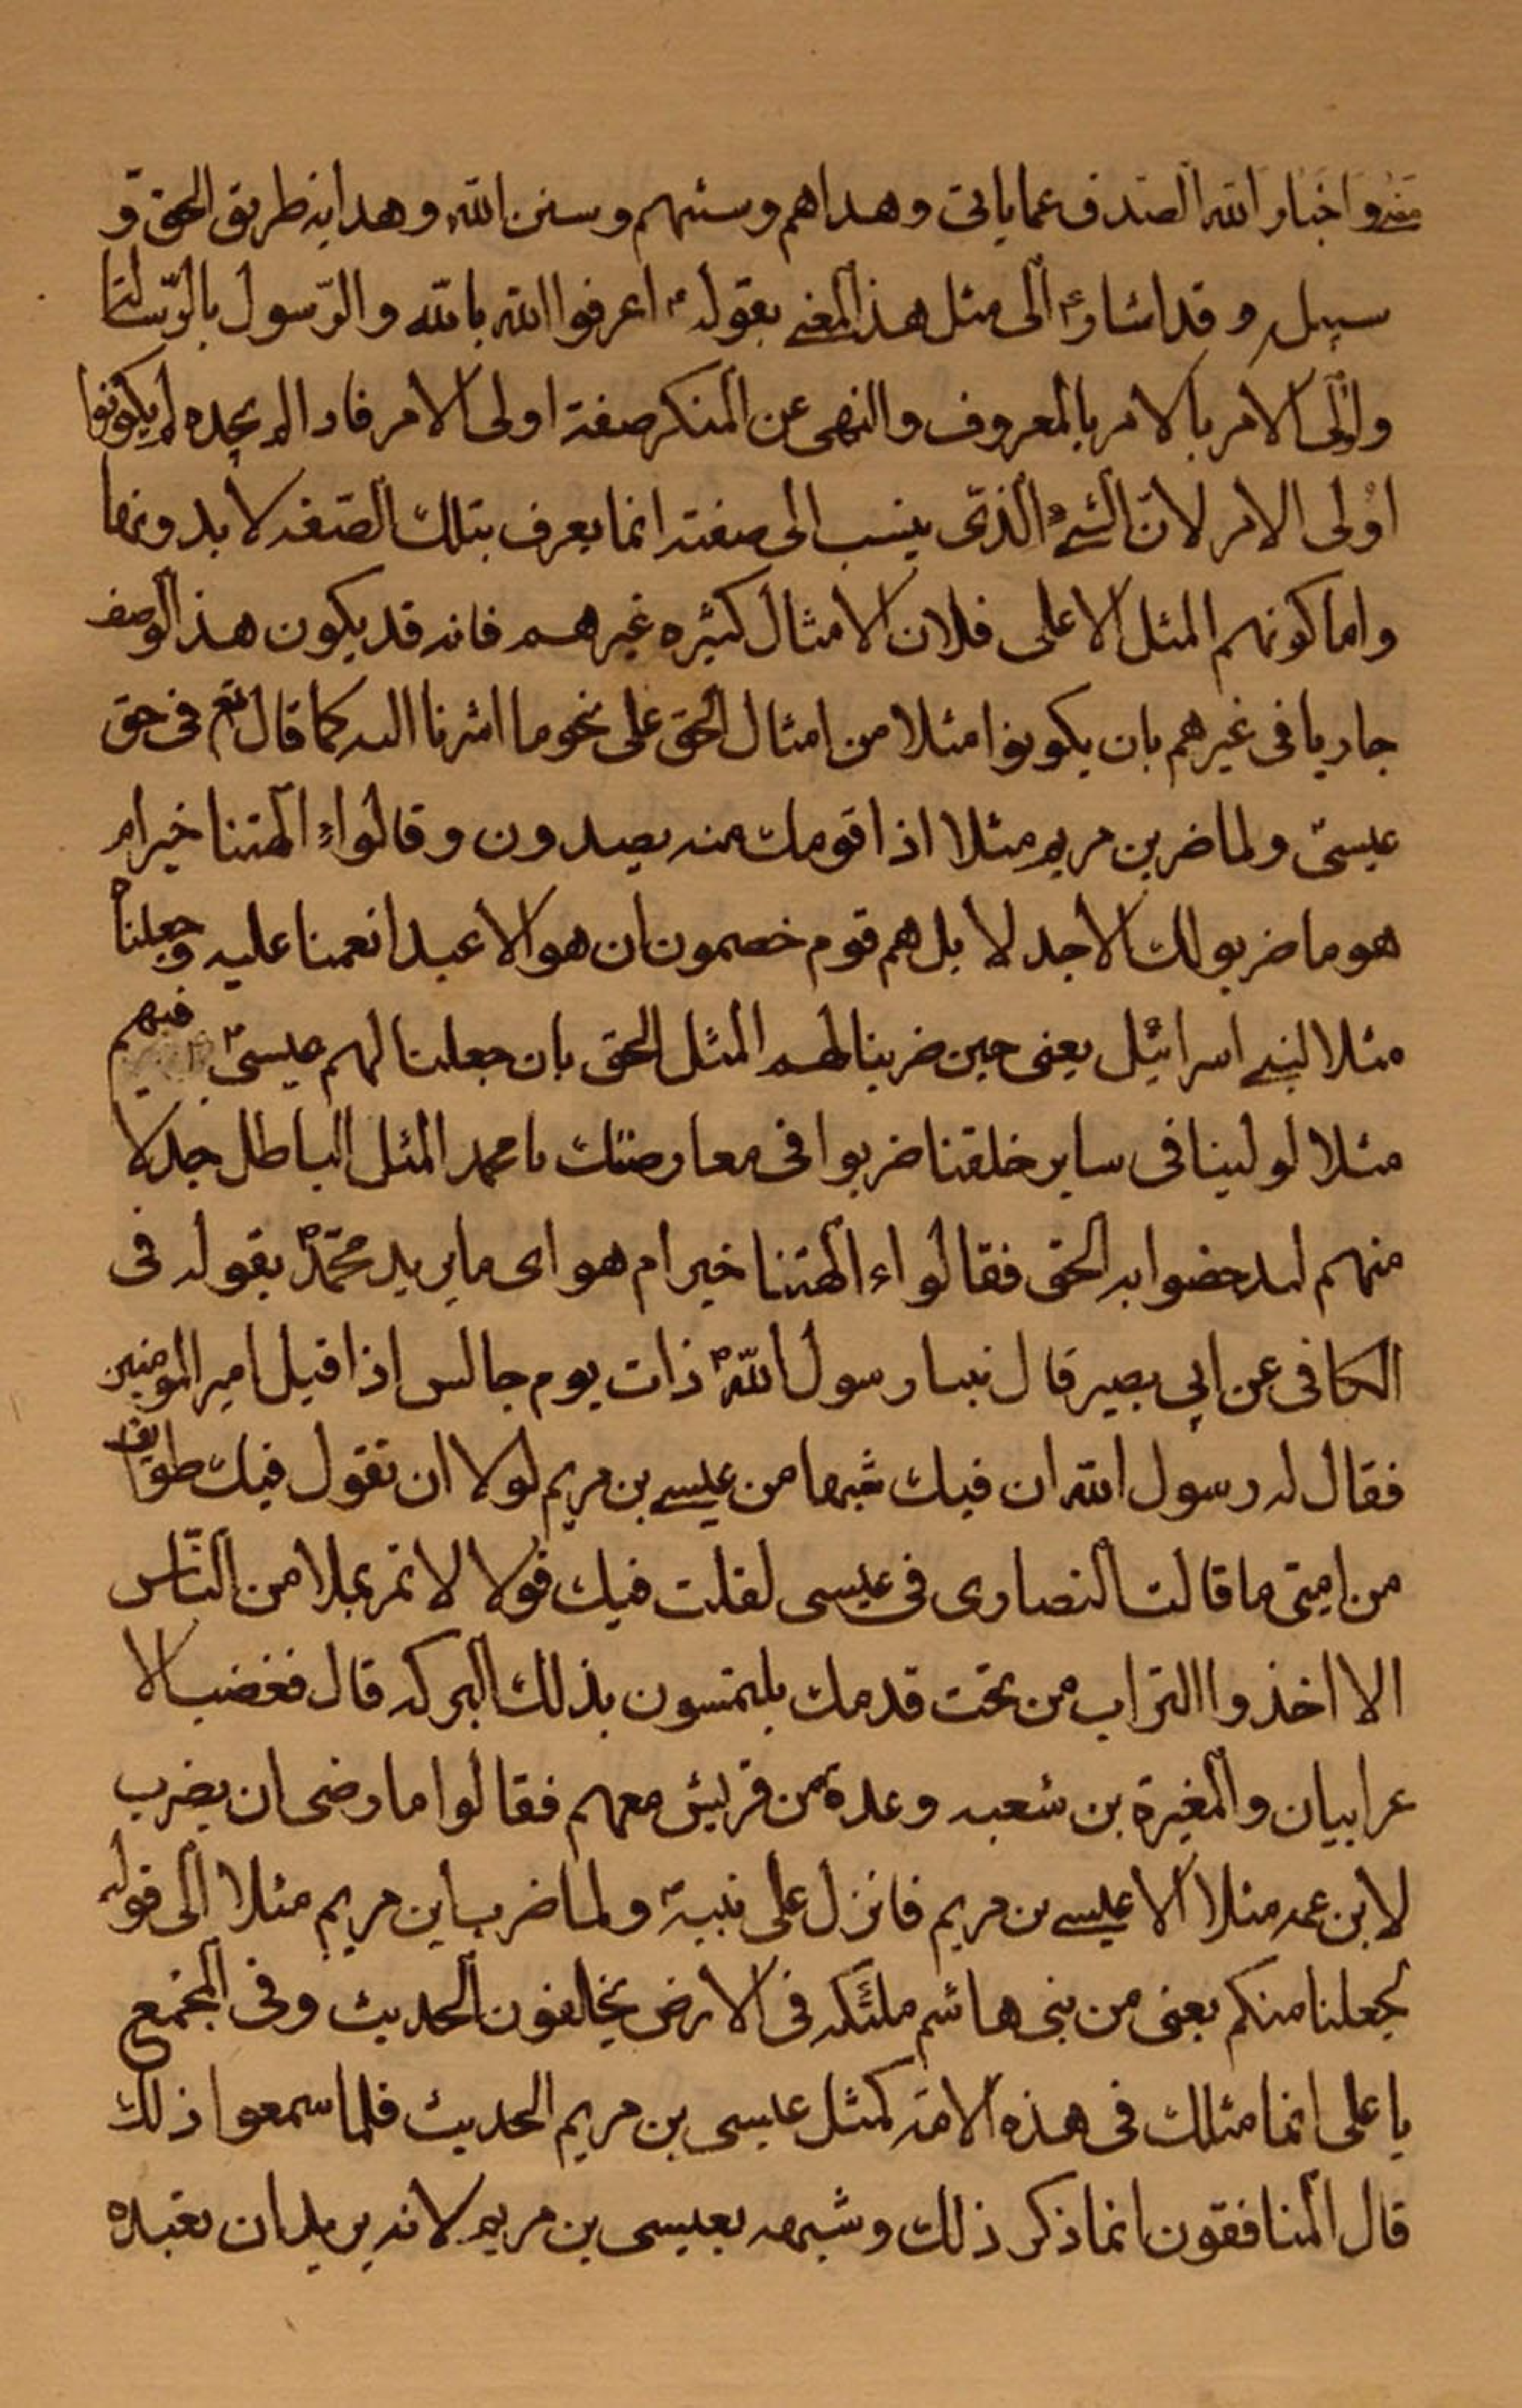 منه و اخبار الله الصدق عما ياتى و هداهم و سننهم و سنن الله و هدايه طريق الحق و
سبيله و قد اشار ع الى مثل هذا المعنى بقوله ع اعرفوا الله بالله و الرّسول بالرّسالة
و اولى الامر بالامر بالمعروف و النهى عن المنكر صفة اولى الامر فاذا لم يجده لم يكونوا
اولى الامر لانّ الشىء الذى ينسب الى صفته انما يعرف بتلك الصّفه لا بدونها
و اما كونهم المثل الاعلى فلان الامثال كثيره غيرهم فانه قد يكون هذا الوصف
جاريا فى غيرهم بان يكونوا مثلا من امثال الحق على نحو ما اشرنا اليه كما قال تع فى حق
عيسىّ و لما ضرب بن مريم مثلا اذا قومك منه يصدون و قالواء الهتنا خير ام
هو ما ضربو لك الا جدلا بل هم قوم خصمون ان هو الا عبد انعمنا عليه و جعلناه
مثلا لبنى اسرائيل يعنى حين ضربنا لهم المثل الحق بان جعلنا لهم عيسىّ فيهم
مثلا لولينا فى ساير خلقنا ضربوا فى معارضتك يا محمد المثل الباطل جدلا
منهم ليدحضوا به الحق فقالواء الهتنا خير ام هو اى ما يريد محمّد ص بقوله فى
الكافى عن ابي بصير قال نبيا رسول الله ص ذات يوم جالس اذا قبل امير المومنين
فقال له رسول الله ان فيك شبها من عيسى بن مريم لولا ان تقول فيك طوايف
من امتى ما قالت النصارى فى عيسى لقلت فيك قولا لا تمر بملا من النّاس
الا اخذوا التراب من تحت قدمك يلتمسون بذلك البركه قال فغضب الا
عرابيان و المغيرة بن شعبه و عدة من قريش معهم فقالوا ما رضى ان يضرب
لابن عمه مثلا الا عيسى بن مريم فانزل على نبيه و لما ضرب ابن مريم مثلا الى قوله
لجعلنا منكم يعنى من بنى هاشم ملئكه فى الارض يخلفون الحديث و فى المجمع
يا على انما مثلك فى هذه الامه كمثل عيسى بن مريم الحديث فلما سمعوا ذلك
قال المنافقون انما ذكر ذلك و شبهه بعيسى بن مريم لانه يريد ان نعبده